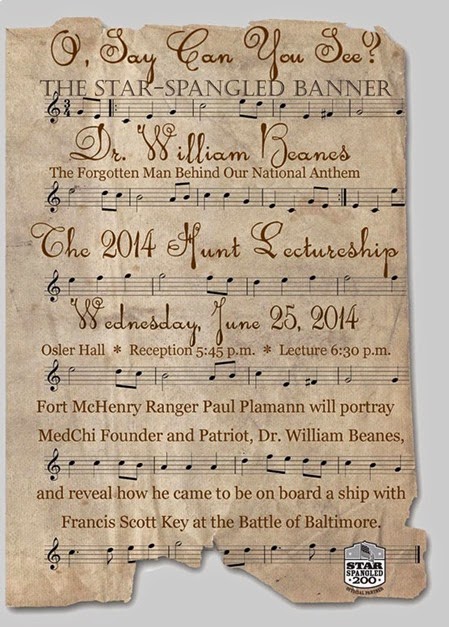 O, Say Can You See?
THE STAR-SPANGLED BANNER
Dr. William Beanes
The Forgotten Man Behind Our National Anthem
The 2014 Hunt Lectureship
Wednesday, June 25, 2014
Osler Hall * Reception 5:45 p.m. * Lecture 6:30 p.m.
Fort McHenry Ranger Paul Plamann will portray
MedChi Founder and Patriot, Dr. William Beanes,
and reveal how he came to be on board a ship with
Francis Scott Key at the Battle of Baltimore.
STAR
SPANGLED
200
OFFICIAL PARTNER